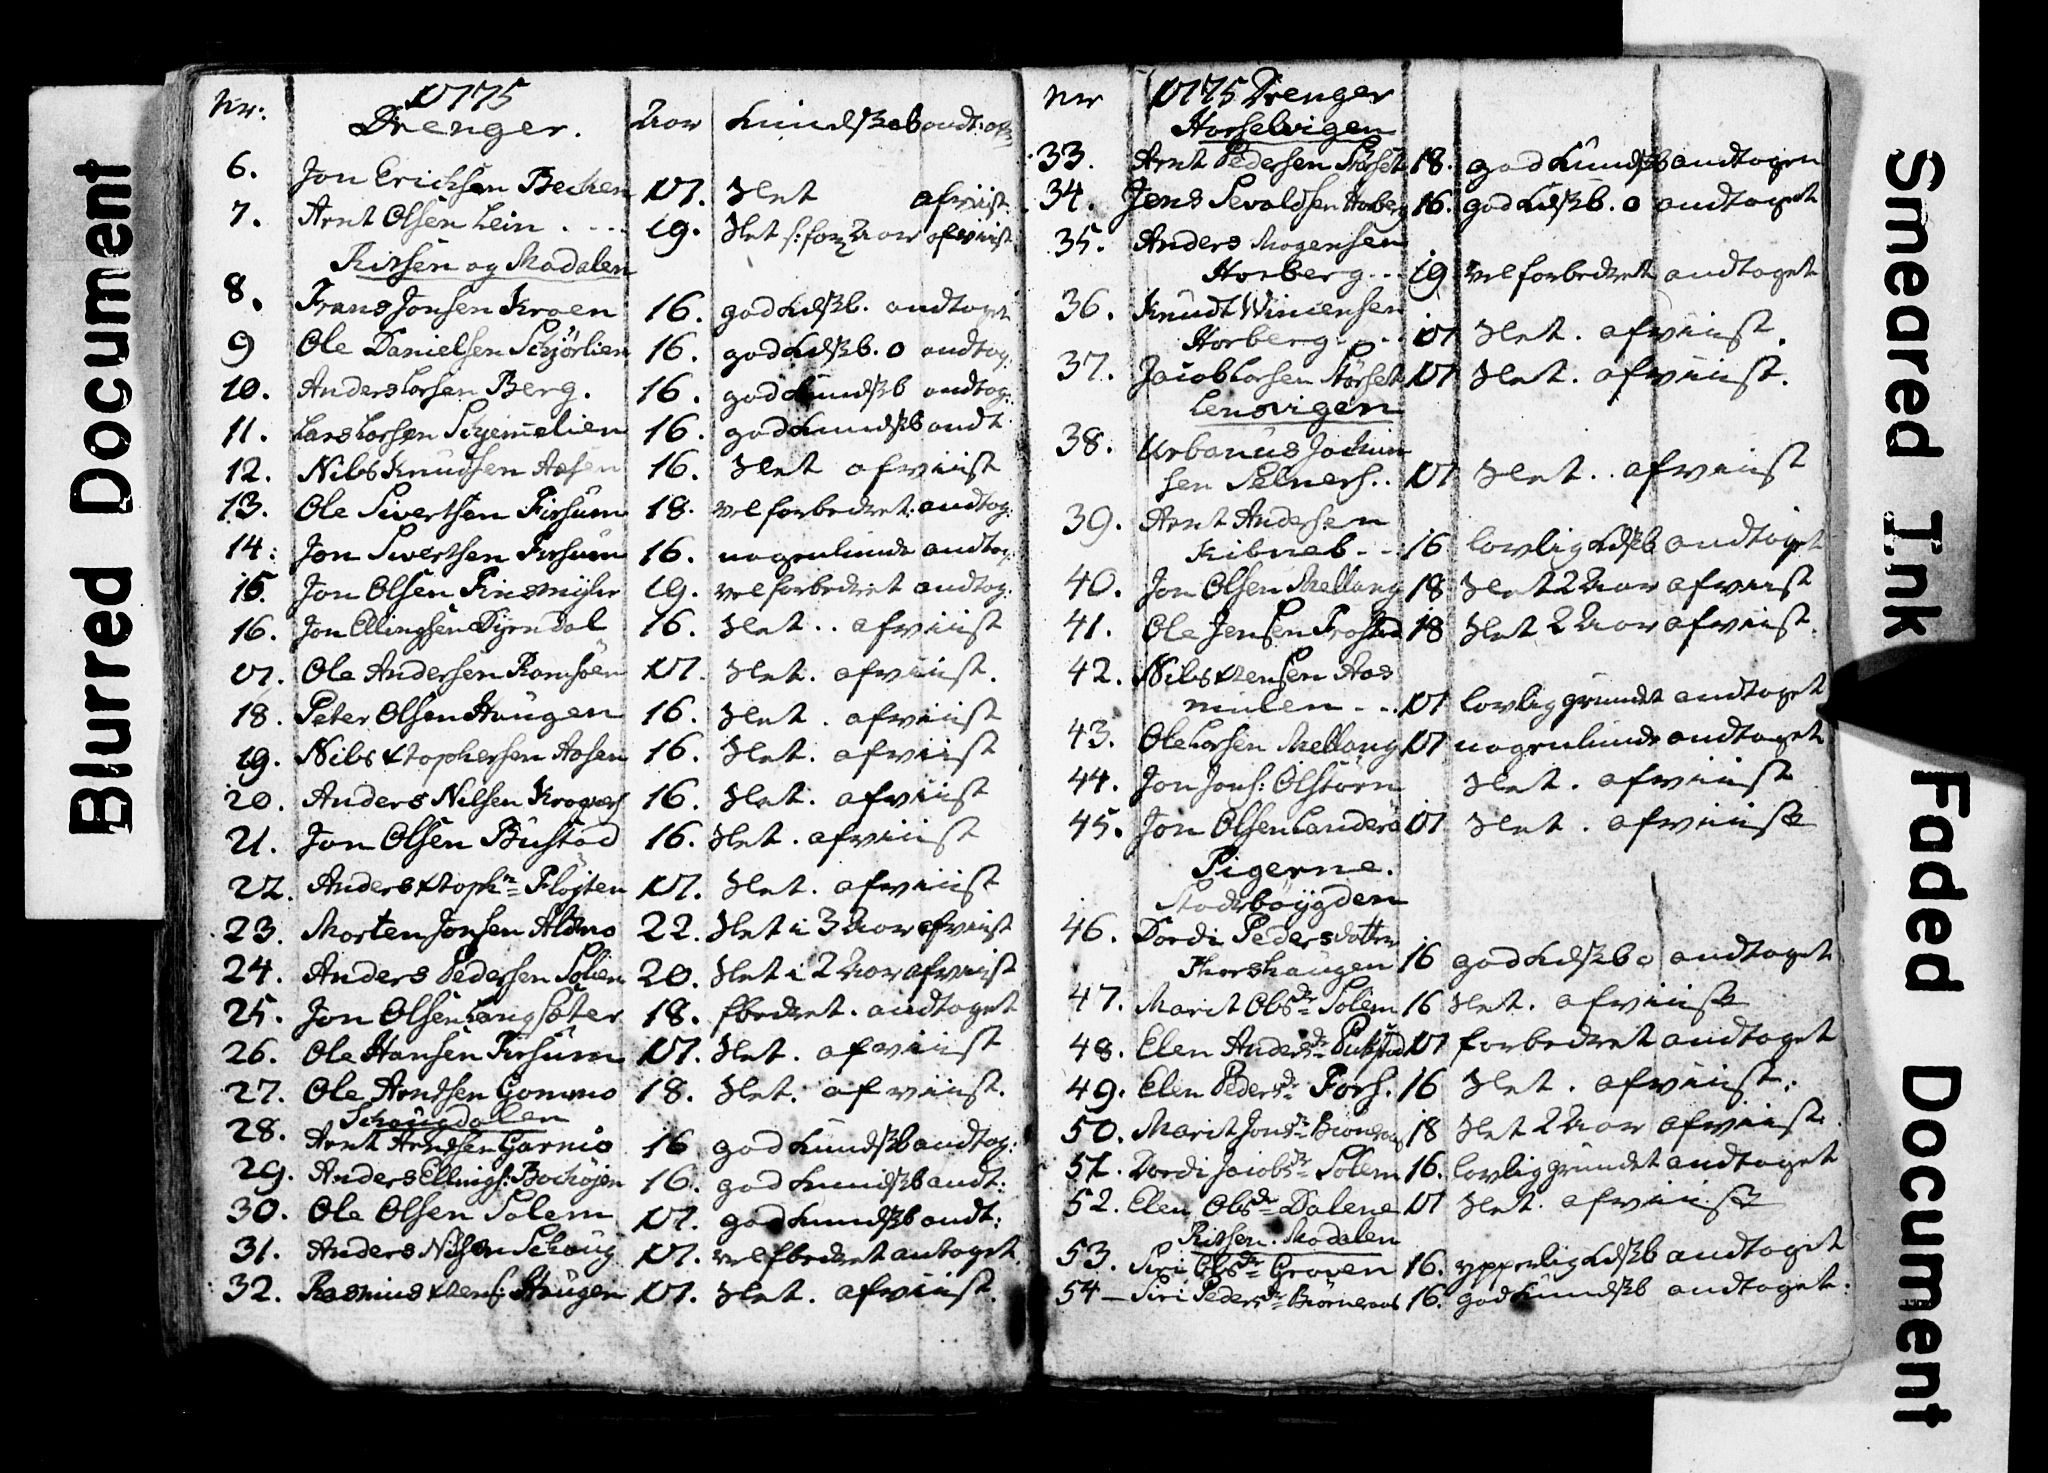 Blurred Document
Nr: 1775 Drenger. Aar Kundskab andt:
6. Jon Erichsen Becken 17. Slet afviist
7. Arnt Olsen Lein . . . 19. Slet s: for Aar afviist
Risen og Modalen
8. Frans Jonsen Kroen 16. god Kdskb. andtaget
9 Ole Danielsen Schjörlien 16. god Kdskb. o andtog:
10. Anders Larsen Berg. 16. god Kundskb andtog:
11. Lars Larsen Schjemelien 16. god Kundskb andt
12. Nils Knudsen Aasen 16. Slet afviist
13. Ole Sivertsen Firsum 18. vel forbedret. andtog:
14: Jon Sivertsen Firsum 16. nogenlunde andtog:
15. Jon Olsen 19. vel forbedret andtog:
16. Jon Ellingsen Dyrendal 16. Slet . . afviist
17. Ole Andersen Ramsöen 17. Slet. afviist.
18. Peter Olsen Haugen 16. Slet . afviist
19. Nils Xtophersen Aasen 16. Slet. afviist
20. Anders Nilsen 16. Slet. afviist
21. Jon Olsen Bustad 16. Slet. afviist
22. Anders Xtoph: Flöjten 17. Slet. afviist
23. Morten Jonsen 22. Slet i 3 Aar afviist
24. Anders Pedersen Solem 20. Slet i 2 Aar afviist
25. Jon Olsen Langsæter 18. fbedret. andtaget
26. Ole Hansen Firsum 17. Slet. afviist
27. Ole Arntsen Gommo 18. Slet. afviist.
Schaugdalen
28. Arnt Arntsen Garnio 16 god Kundskb andtog:
29. Anders Ellings: 16. god Kundskb andt:
30. Ole Olsen Solem 17. god Kundskb andt:
31. Anders Nilsen Schaug 17. vel fbedret antaget.
32. Rasmus Xtens: Haugen 17. Slet. afviist.
Nr 1775 Drenger
Hasselvigen
33. Arnt Pedersen Störset 18. god Kundskb andtagen
34. Jens Sevaldsen Horberg 16. god Kdskb. o andtaget
35. Anders Mogensen
Horberg . . 19 vel forbedret andtaget
36. Knudt Wincensen
Horberg . . . 17 Slet. afviist.
37. Jacob Larsen Störset 17 Slet. afviist.
Lensvigen
38. Urbanus Jochum
sen Selners. . 17 Slet. . afviist
39. Arnt Andersen
Kibneb . . 16 lovlig Kdskb andtaget
40. Jon Olsen Mellang 18 Slet 2 Aar afviist
41. Ole Jensen Frostad 18 Slet 2 Aar afviist.
42. Nils Xtensen Aas
mulen . . . 17 lovlig grundet andtaget
43. Ole Larsen Mellang 17 nogenlunde andtaget
44. Jon Jons: Ölstörn Slet. afviist
45. Jon Olsen Landerö 17 Slet . afviist
Pigerne.
Stadsböygden
46. Dordi Pedersdatter
Thorshaugen 16 god Kdskb o andtaget
47. Marit Olsdr Solem 16 Slet. afviist
48. Elen Andersdr 17 forbedret andtaget
49. Elen Pedersdr Fors. 16 Slet . afviist.
50. Marit Jonsdr 18 Slet 2 Aar afviist
51. Dordi Jacobsdr Solem 16. lovlig grundet andtaget
52. Elen Olsdr Dalene 17 Slet. afviist
Risen. Modalen
53. Siri Olsdr Groven 16. ypperlig Kdskb andtaget
54 – Siri Pedersdr Biörneraas 16. god Kundskb andtaget.
Smeared Ink
Faded Document